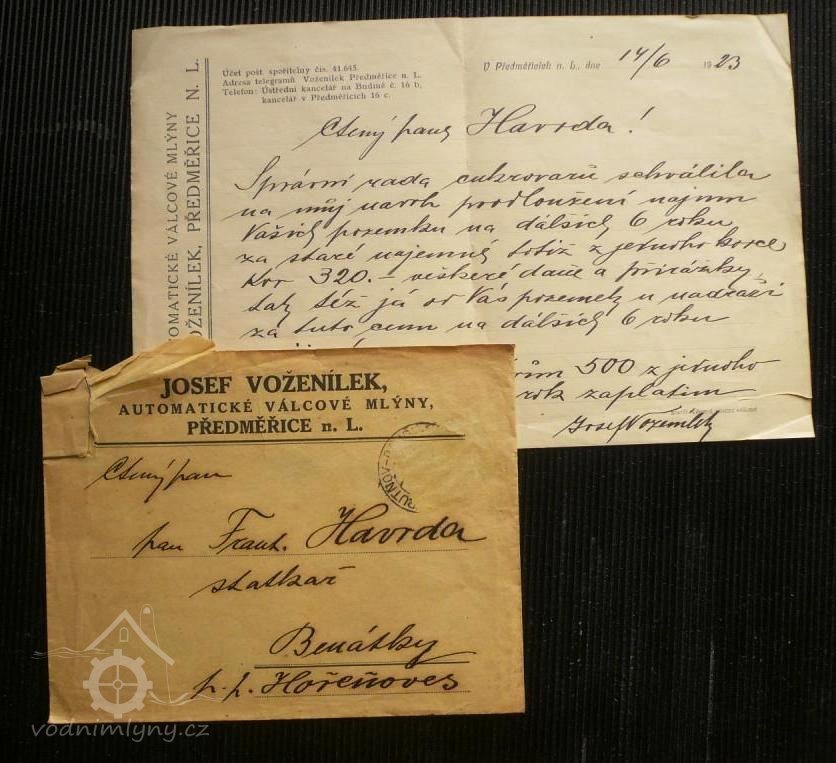 Účet pošt. spořitelny čís. 41.645.
Adresa telegramů Voženílek Předměřice n. L.
Telefon: Ústřední kancelář na Budíně č. 16 b,
kancelář v Předměřicích 16 c.
V Předměřicích n. L., dne 14/6 1923
AUTOMATICKÉ VÁLCOVÉ MLÝNY
VOŽENÍLEK, PŘEDMĚŘICE N. L.
Ctený pane Havrda!
Správní rada cukrovarů schválila
na můj navrh prodloužení najmu
Vašich pozemku na dálších 6 roku
za staré najemné totiž z jednoho korce
Kor 320.– veškeré daně a přirážky
tak též já od Vás pozemek u nadraží
za tuto cenu na dálších 6 roku
500 z jednoho
rok zaplatim
Josef Voženílek
JOSEF VOŽENÍLEK,
AUTOMATICKÉ VÁLCOVÉ MLÝNY,
PŘEDMĚŘICE n. L.
Ctěný pan
pan Frant. Havrda
statkař
Benátky
p. p. Hořeňoves
vodnimlyny.cz